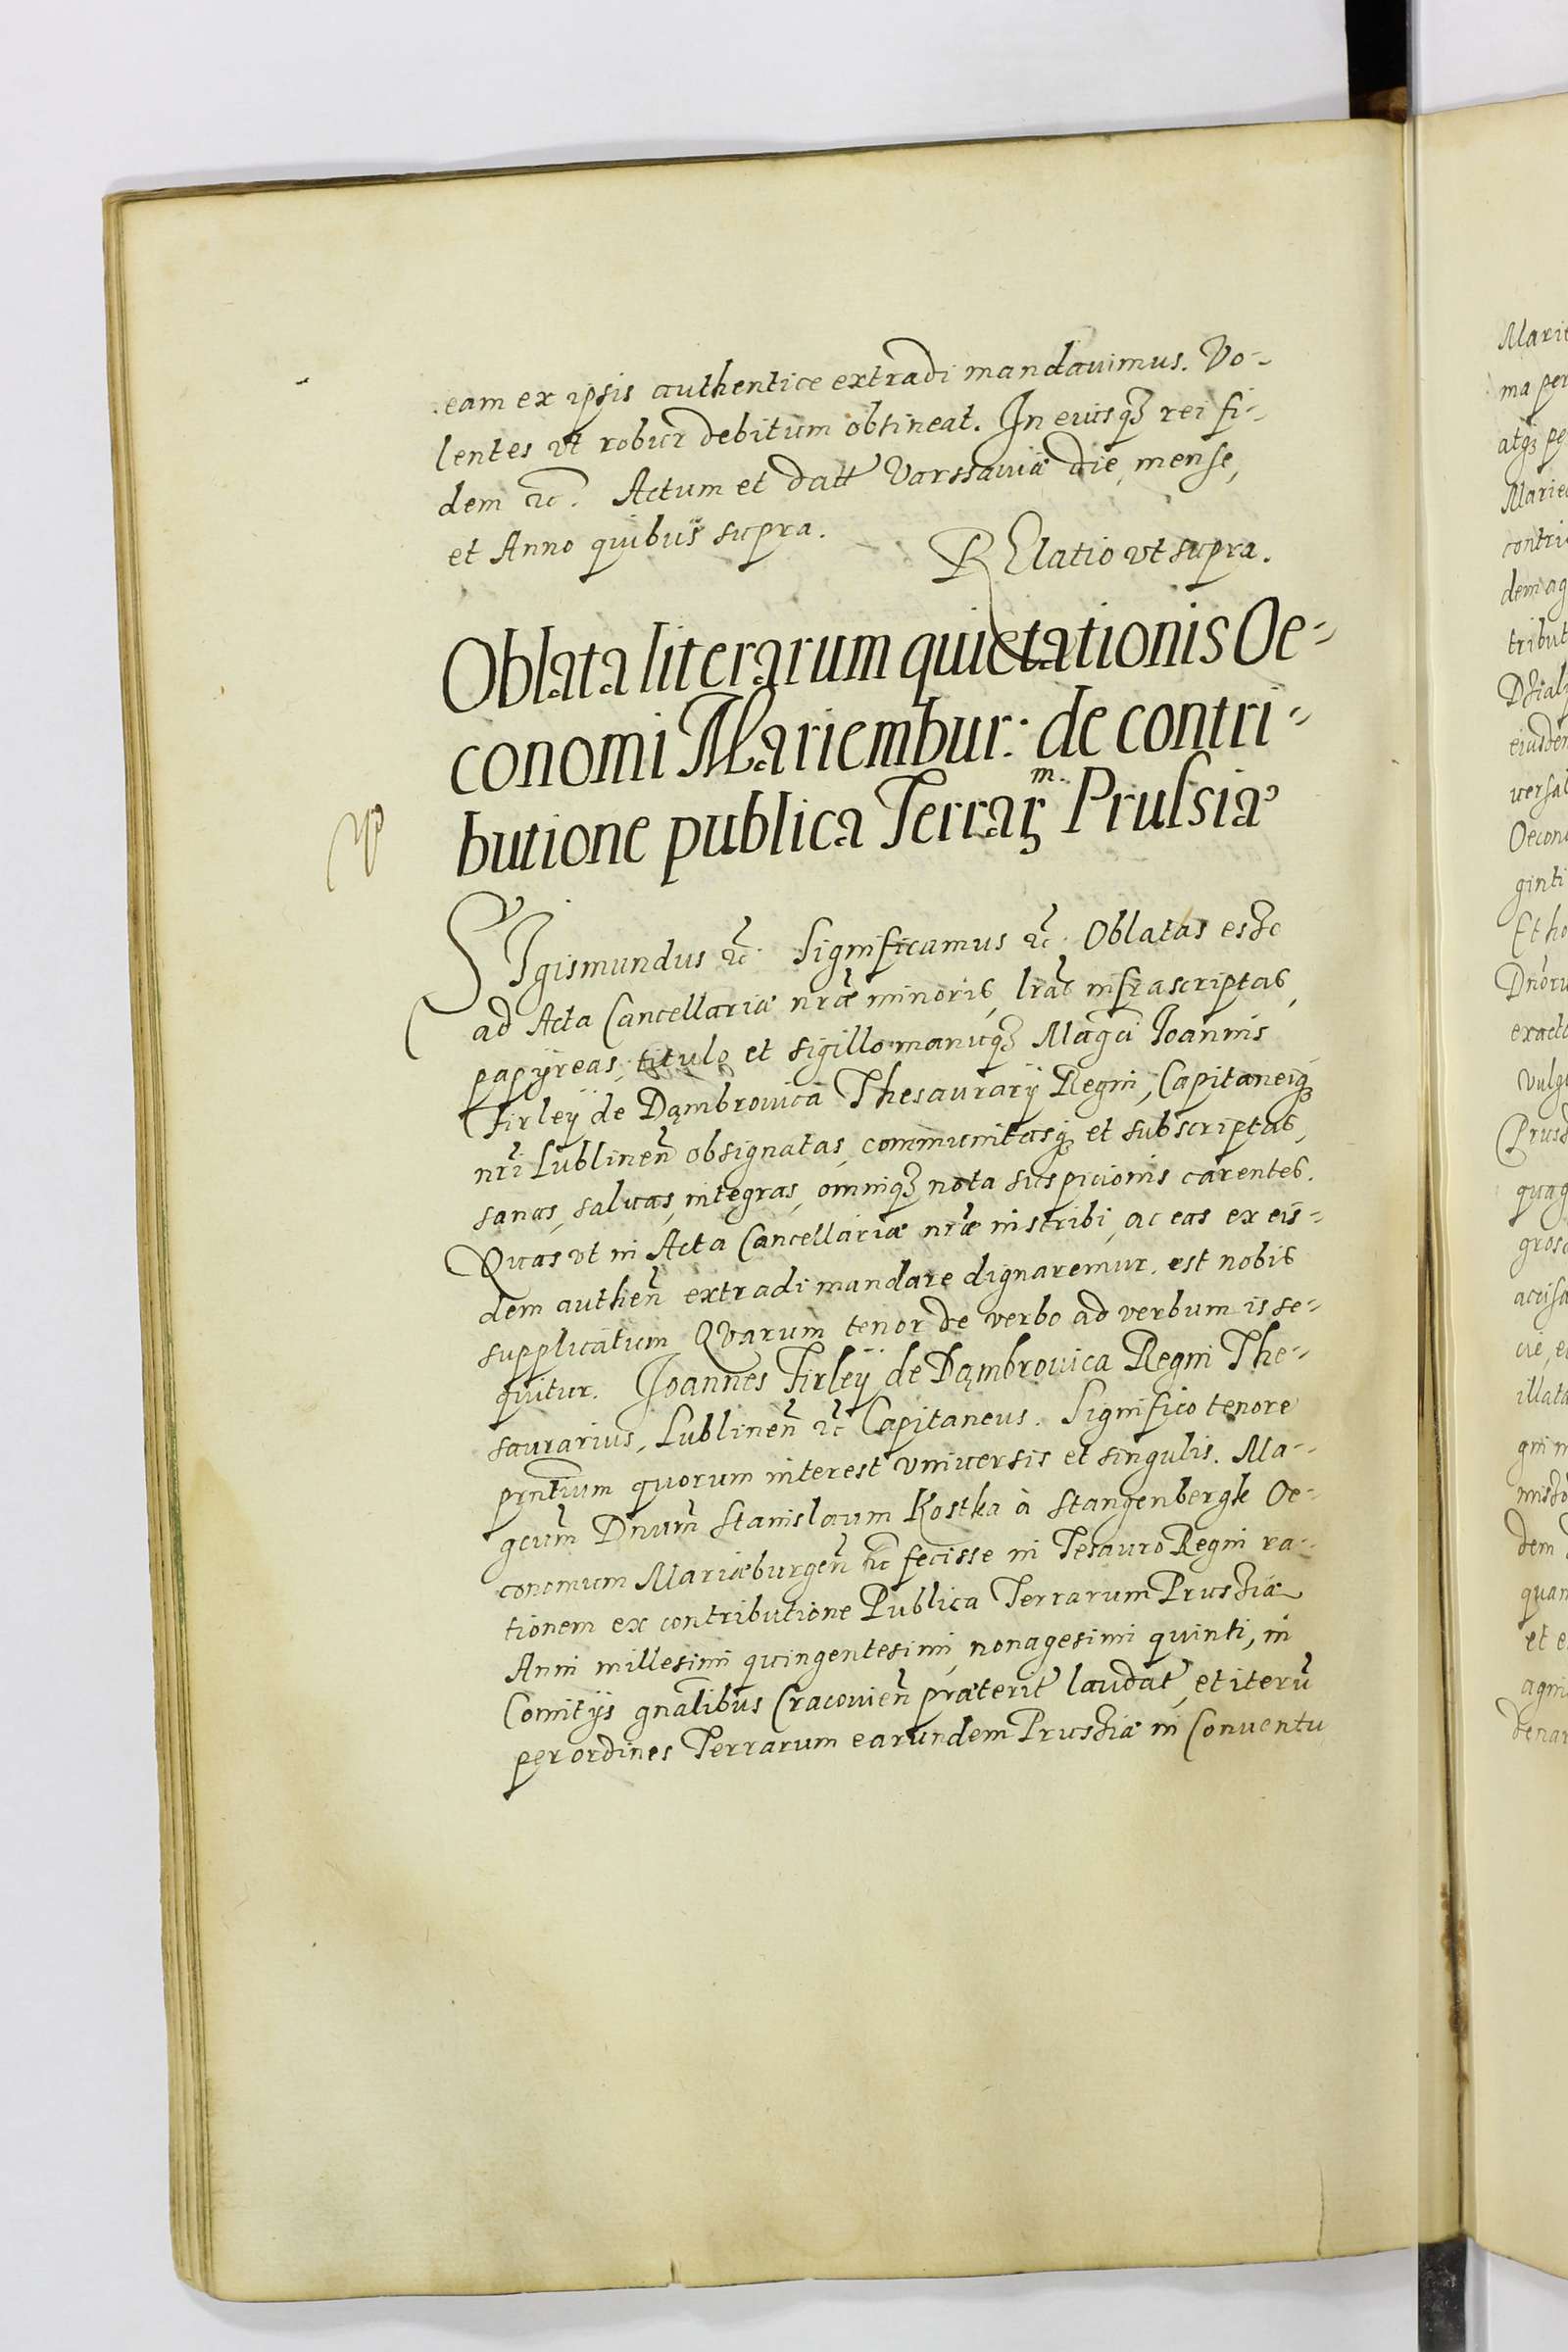 eam ex ipsis authentice extradi mandauimus. Vo-
lentes vt robur debitum obtineat. In euisq3 rei fi-
dem etc. Actum et datt Varssauiæ die, mense,
et Anno quibus supra.
RElatio vt supra.
Oblata literarum quietationis Oe-
conomi Mariembur: de contri-
butione publica Terrarm. Prussiæ
SIgismundus etc. Significamus etc. Oblatas esse
ad Acta Cancellariæ nræ minoris, lras infrascriptas,
papÿreas, titulo et sigillo manuq3 Magci Joannis
Firleÿ de Dąmbrouica Thesaurarÿ Regni, Capitaneiq3
nri Lublinen obsignatas, communitasq3 et subscriptas,
sanas, saluas, integras, omniq3 nota suspicionis carentes.
Quas vt in Acta Cancellariæ nræ inscribi, ac eas ex eis-
dem authen extradi mandare dignaremur. est nobis
supplicatum Quarum tenor de verbo ad verbum is se-
quitur. Joannes Firleÿ de Dąmbrouica Regni The-
saurarius, Lublinen etc Capitaneus. Significo tenore
prntium quorum interest vniuersis et singulis. Ma-
gcum Dnum Stanislaum Kostka à Stangenbergk Oe-
conomum Mariæburgen etc fecisse in Tesauro Regni ra-
tionem ex contributione Publica Terrarum Prussiæ
Anni millesimi quingentesimi, nonagesimi quinti, in
Comitÿs gnalibus Cracouien præterit laudat, et iteru
per ordines Terrarum earundem Prussiæ in Conuentu
Marie
ma per
atq3 pe
contri
dem ag
tribut
eiusdem
uersal
Oecon
ginti
Et ho
Dnoru
exact
vulg
Pruss
quag
gros
illata
dem
quam
et e
agni
denar